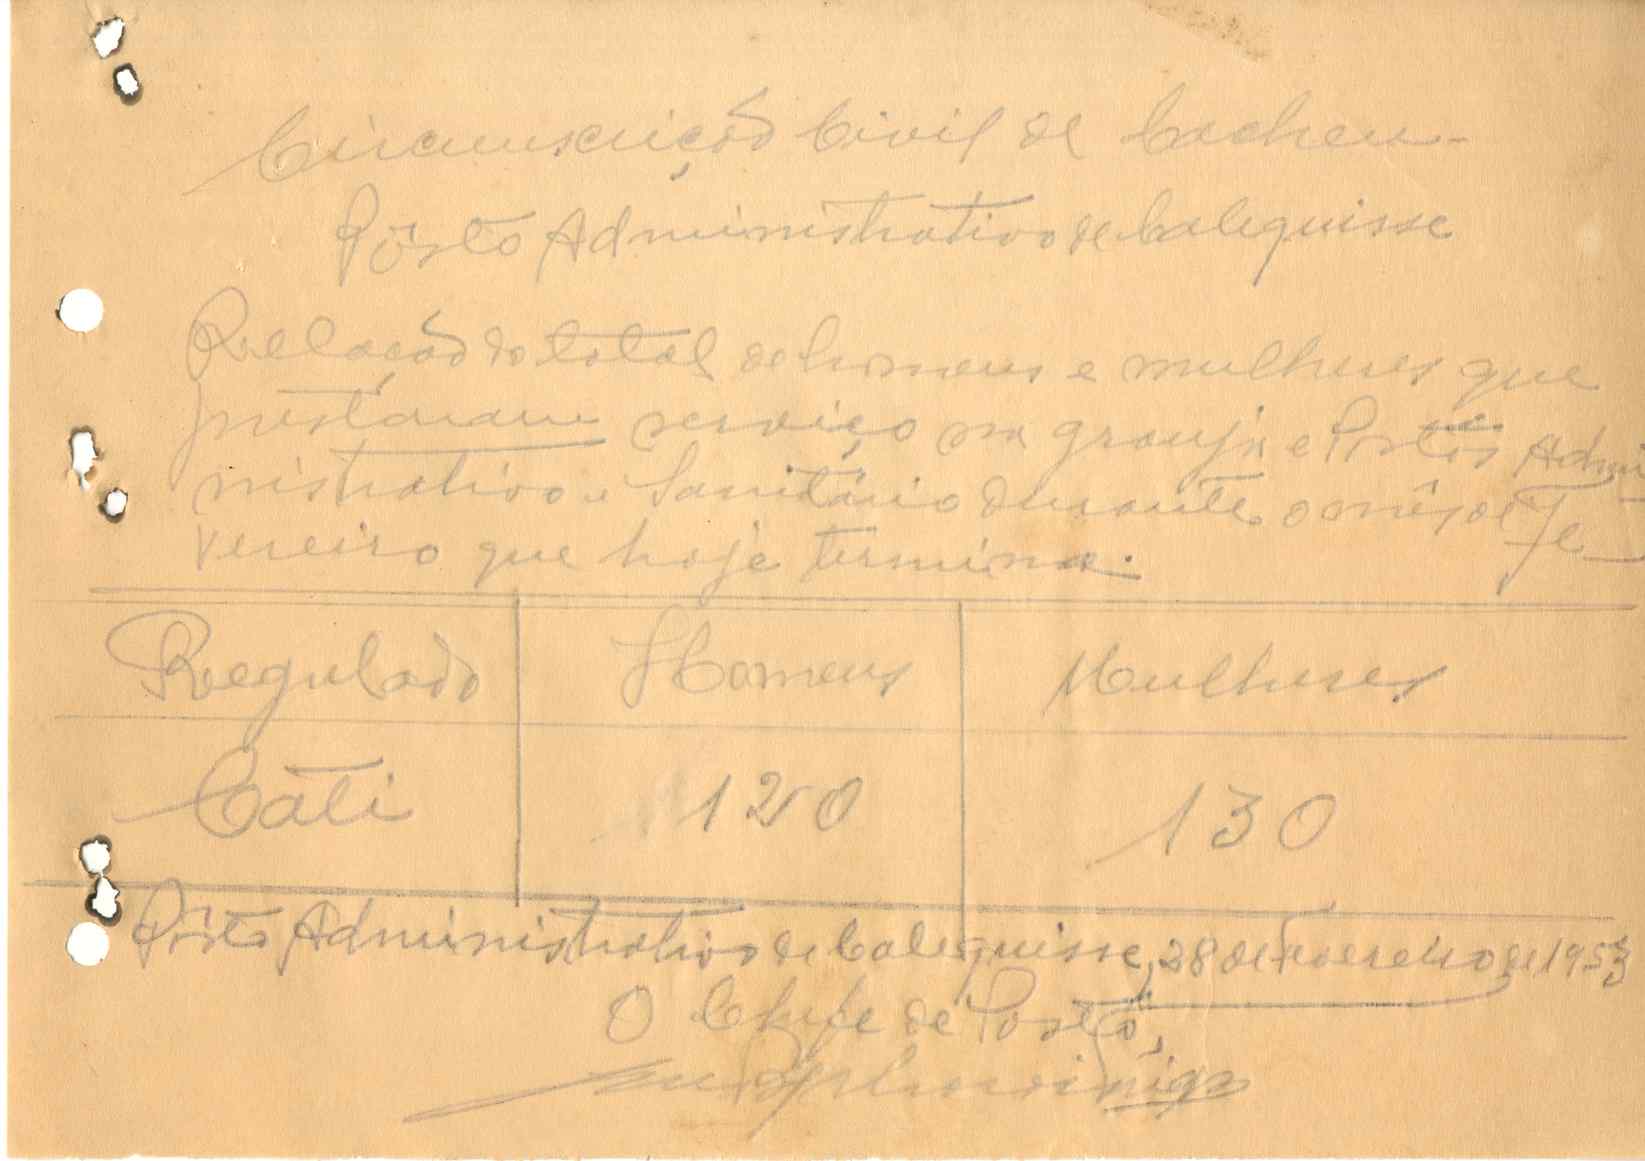 Circunscrição Civil de Cacheu-
Pôsto Administrativo de Calequisse
Relação do total de homens e mulheres que
prestaram serviço na granja e Postos Admi
nistrativo e Sanitário durante o mês de Fe
vereiro que hoje termina.
Regulado Homens Mulheres
Cati 120 130
Pôsto Administrativo de Calequisse, 28 de Fevereiro de 1953
O Chefe de Posto,